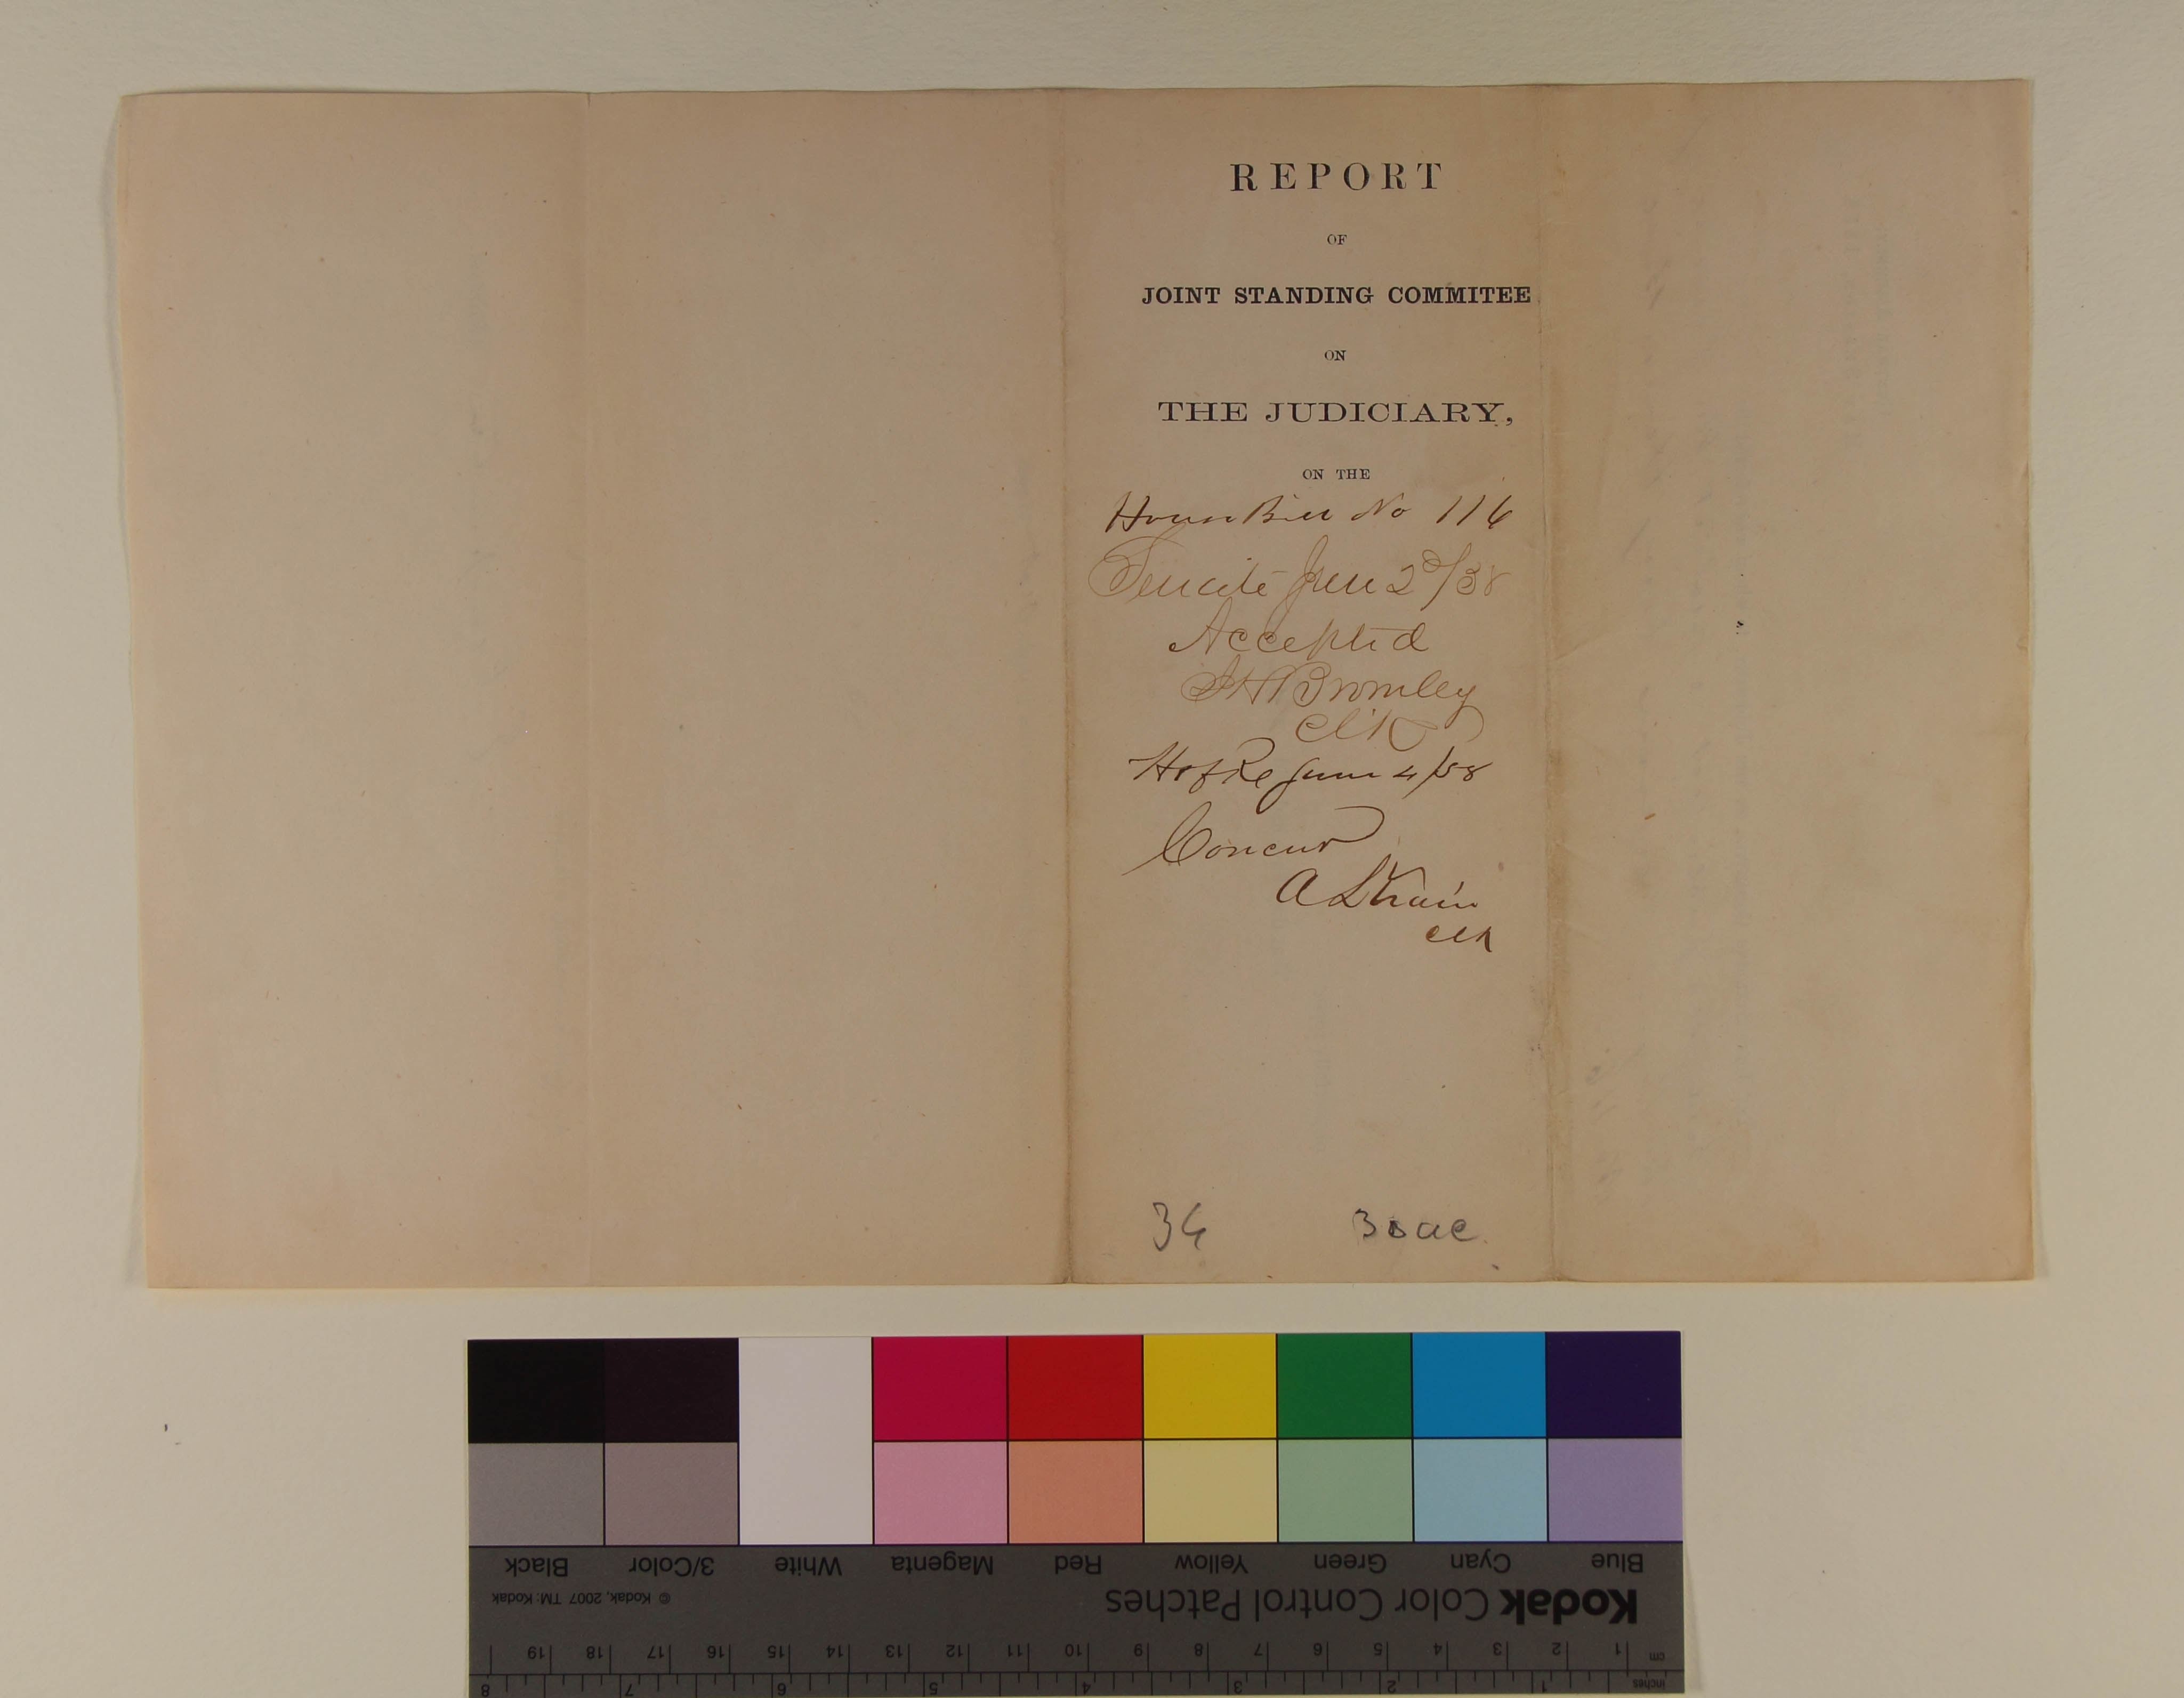 REPORT
OF
JOINT STANDING COMMITEE
ON
THE JUDICIARY,
ON THE
House Bill No 116
Senate June 2d/58
Accepted
I H Bromley
Clk
H of Re June 4/58
Concur
A L Train
Clk
34 3 ac.
Black 3/Color White Magenta Red Yellow Green Cyan Blue
© Kodak, 2007 TM: Kodak
Kodak Color Control Patches
cm 1 2 3 4 5 6 7 8 9 10 11 12 13 14 15 16 17 18 19
inches 1 2 3 4 5 6 7 8